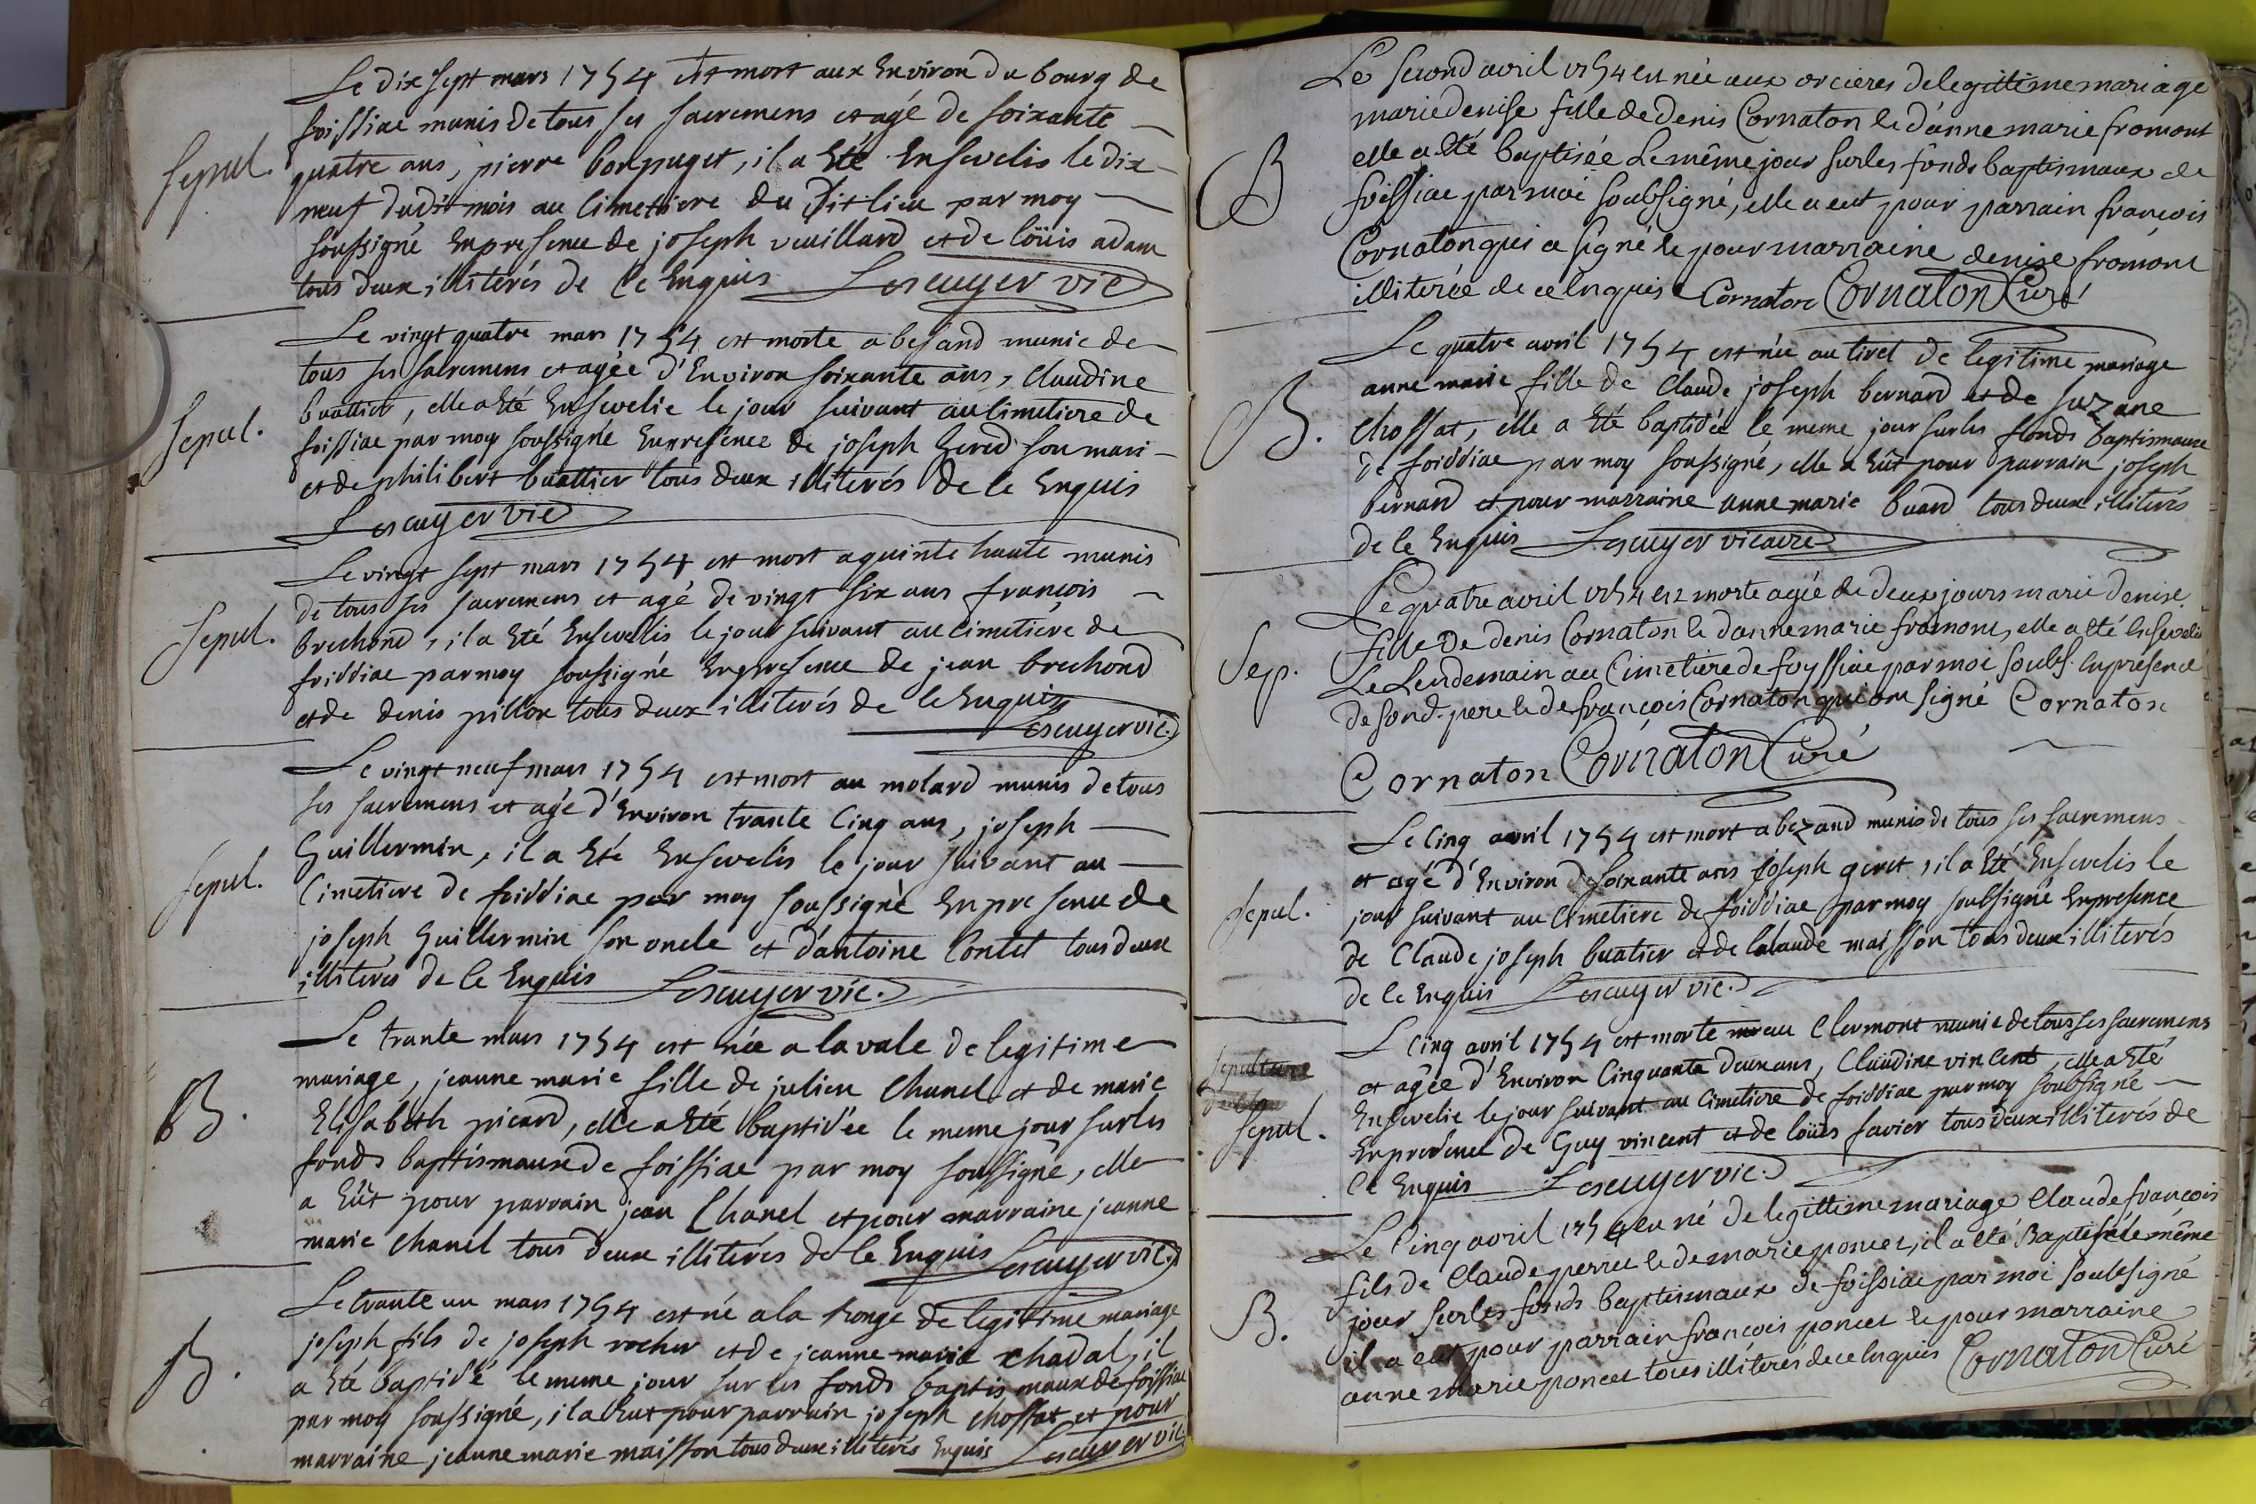 Le dix sept mars 1754 est mort aux Environ du bourg de
foissiac munis de tous ses sacremens et agé de soixante
Sepul.
quatre ans, pierre bonpuget, il a Eté Ensevelis le dix
neuf dudit mois au Cimetiere du Dit lieu par moy
soussigné Enpresence de joseph veuillard et de loüis adam
tous deux illiterés de Ce Enquis Lescuyer vic
Le vingt quatre mars 1754 est morte a besand munie de
tous ses sacremens et agée d'Environ soixante ans, Claudine
Sepul.
buattier, elle a Eté Ensevelie le jour suivant au Cimetiere de
foissiac par moy soussigné Enpresence de joseph Geret son mari
et de philibert buattier tous deux illiterés de Ce Enquis
Lescuyer vic
Le vingt sept mars 1754 est mort a quinte haute munis
de tous ses sacremens et agé de vingt six ans françois
Sepul.
brechond, il a Eté Ensevelis le jour suivant au Cimetiere de
foissiac par moy soussigné Enpresence de jean brechond
et de denis pillon tous deux illiterés de Ce Enquis
Lescuyer vic.
Le vingt neuf mars 1754 est mort au molard munis de tous
ses sacremens et agé d'Environ trante Cinq ans, joseph
Sepul.
Guillermin, il a Eté Ensevelis le jour suivant au
Cimetiere de foissiac par moy soussigné Enpresence de
joseph Guillermin son oncle et d'antoine Contet tous deux
illiterés de Ce Enquis Lescuyer vic.
Le trante mars 1754 est née a la vale de legitime
mariage, jeanne marie fille de julien Chanel et de marie
B.
Elisabeth picard, elle a Eté baptisée le meme jour sur les
fonds baptismaux de foissiac par moy soussigné, elle
a Eût pour parrain jean Chanel et pour marraine jeanne
marie Chanel tous deux illiterés de Ce Enquis Lescuyer vic.
Le trante un mars 1754 est né a la ronge de legitime mariage
joseph fils de joseph rocher et de jeanne marie chadal, il
B.
a Eté baptisé le meme jour sur les fonds baptismaux de foissiac
par moy soussigné, il a Eut pour parrain joseph Chossat et pour
marraine jeanne marie maisson tous deux illiterés Enquis Lescuyer vic.
Le second avril 1754 est née aux orcieres de legittime mariage
marie denise fille de denis Cornaton et d'anne marie fromont
B
elle a eté baptisée le même jour sur les fônds baptismaux de
foissiac par moi soubsigné, elle a eut pour parrain françois
Cornaton qui a signé et pour marraine denise fromont
illiterée de ce enquise Cornaton Cornaton Curé
Le quatre avril 1754 est née au tiret de legitime mariage
anne marie fille de Claude joseph bernard et de suzane
B.
Chossat, elle a Eté baptisée le meme jour sur les fonds baptismaux
de foissiac par moy soussigné, elle a Eût pour parrain joseph
bernard et pour marraine anne marie buard tous deux illiterés
de Ce Enquis Lescuyer vicaire
Le quatre avril 1754 est morte agée de deux jours marie denise
Sep.
fille de denis Cornaton et d'anne marie fromont, elle a eté ensevelie
Le Lendemain au Cimetiere de foyssiac par moi soubs. en presence
de son d. pere et de françois Cornaton qui ont signé Cornaton
Cornaton Cornaton Curé
Le Cinq avril 1754 est mort a bezand munis de tous ses sacremens
et agé d'Environ soixante ans joseph geret, il a Eté Ensevelis le
Sepul.
jour suivant au Cimetiere de foissiac par moy soubsigné Enpresence
de Claude joseph buatier et de Claude maisson tous deux illiterés
de Ce Enquis Lescuyer vic.
Le Cinq avril 1754 est morte au Clermont munie de tous ses sacremens
Sepulture
et agée d'Environ Cinquante deux ans, Claudine vincent, elle a Eté
Sepul.
Ensevelie le jour suivant au Cimetiere de foissiac par moy soubsigné
Enpresence de Guy vincent et de loüis favier tous deux illiterés de
Ce Enquis Lescuyer vic.
Le Cinq avril 1754 est né de legittime mariage Claude françois
fils de Claude perret et de marie poncet, il a eté Baptisé le même
B.
jour sur les fonds baptismaux de foissiac par moi soubsigné
il a eut pour parrain françois poncet et pour marraine
anne marie poncet tous illiterés de ce enquis Cornaton Curé